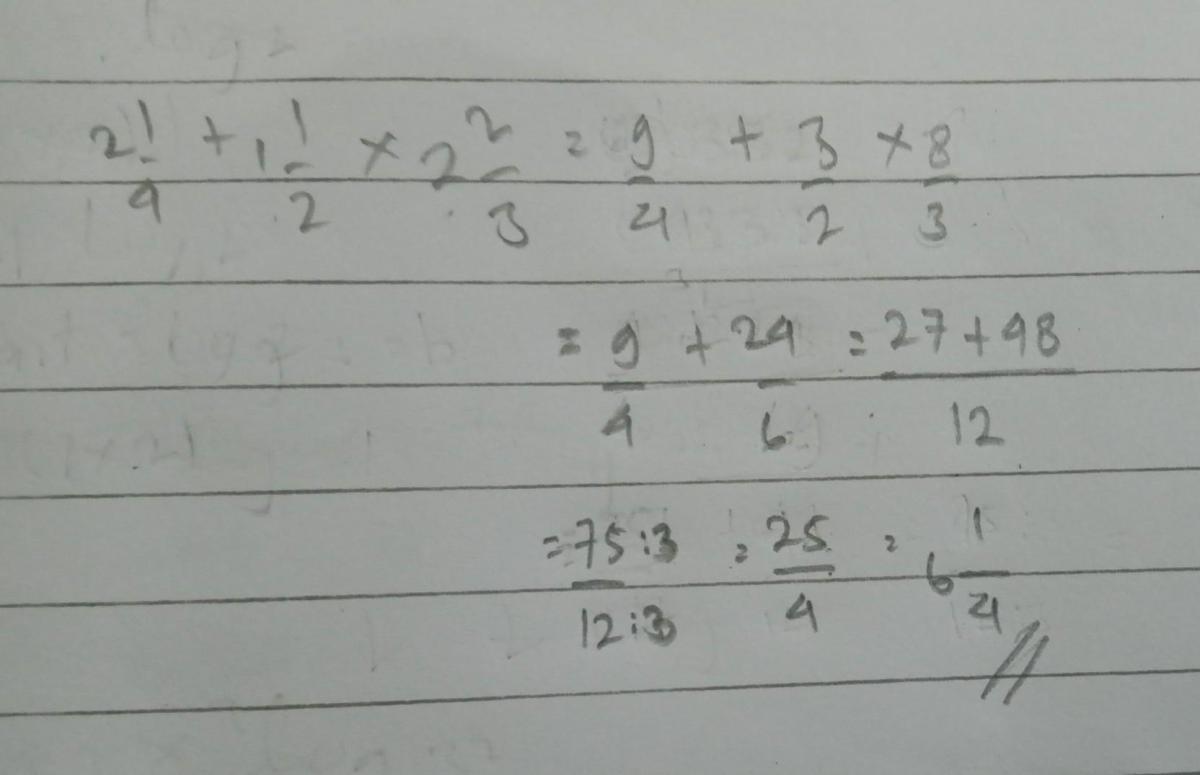 2 1/4 + 1 1/2 × 2 2/3 = 9/4 + 3/2 × 8/3
= 9/4 + 24/6 = (27 + 48)/12
= 75:3/12:3 = 25/4 = 6 1/4 //